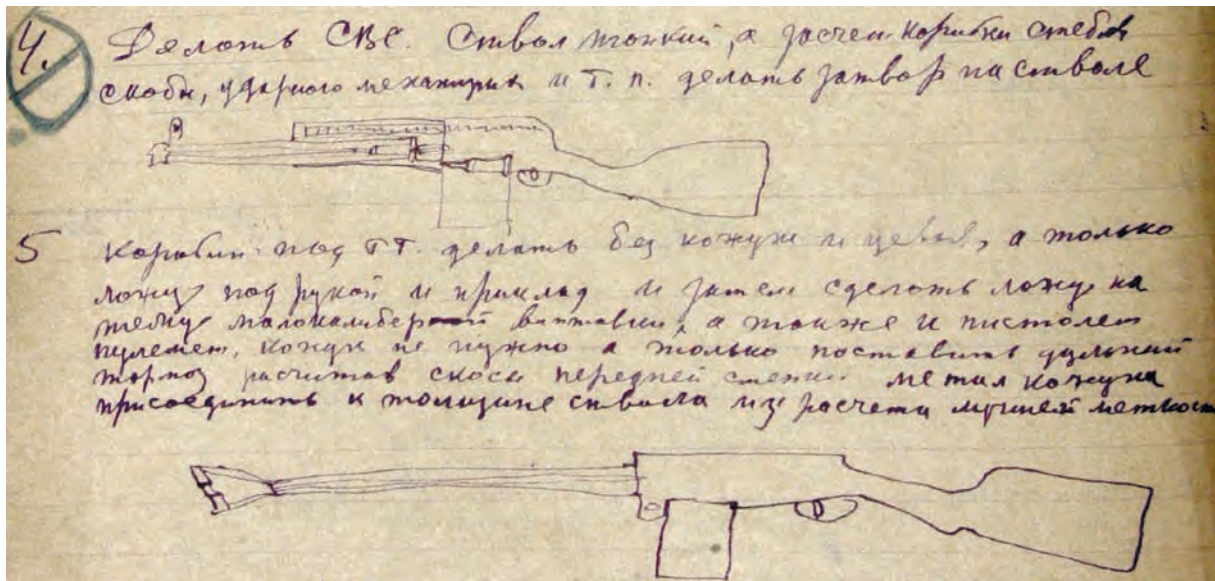 4. Делать СВС. Ствол тонкий, а засчет коробки стебля
скобы, ударного механизма и т. п. делать затвор на стволе
5 Карабин под ТТ. делать без кожуха и цевья, а только
ложу под рукой и приклад и затем сделать ложу на
малокалиберной винтовки, а также и пистолет
пулемет, кожух не нужно а только поставить дульный
тормоз расчитав скосы передней стенки метал кожуха
присоединить к толщине ствола из расчета лучшей меткости